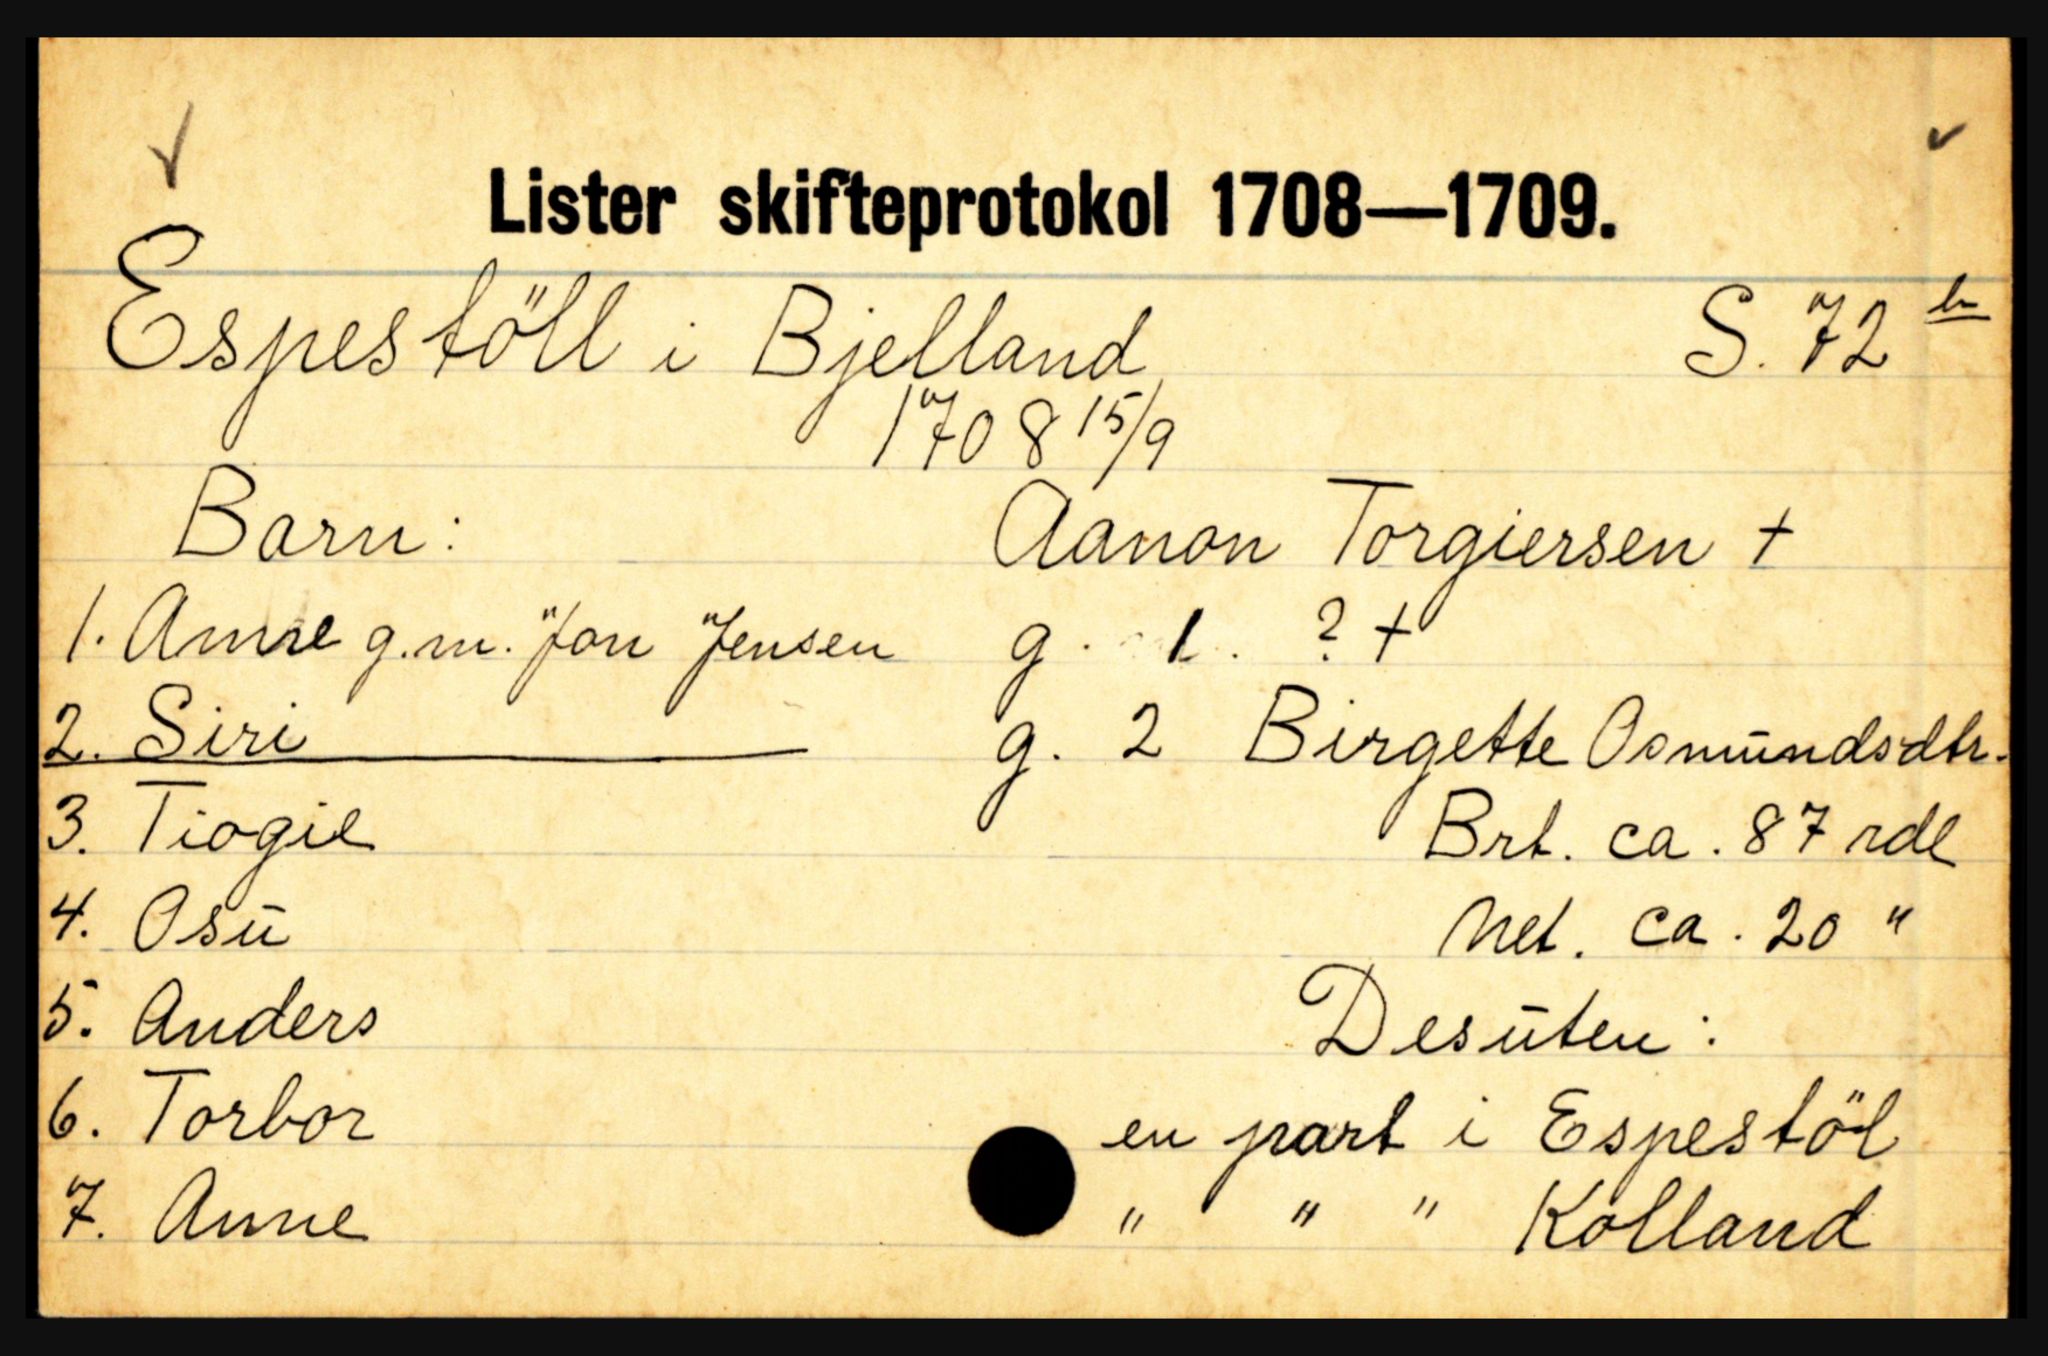 Lister skifteprotokol 1708—1709.
Espestöll i Bjelland S. 72 b
1708 15/9
Barn: Aanon Torgiersen +
1. Anne g.m. Jon Jensen g. 1. ? +
2. Siri g. 2 Birgette Osmundsdtr.
3. Tiogie Brt. ca. 87 rdl
4. Osu Net. ca. 20 "
5. Anders Desuten:
6. Torbor en part i Espestöl
7. Anne " " " Kolland